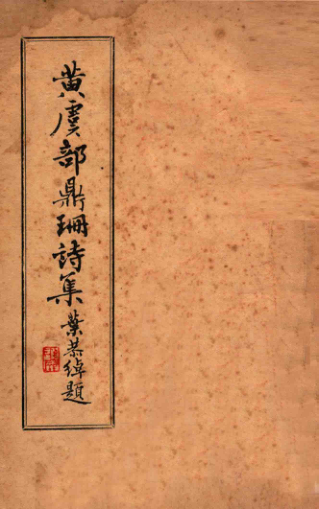 黄虞部鼎珊詩集
葉恭綽題